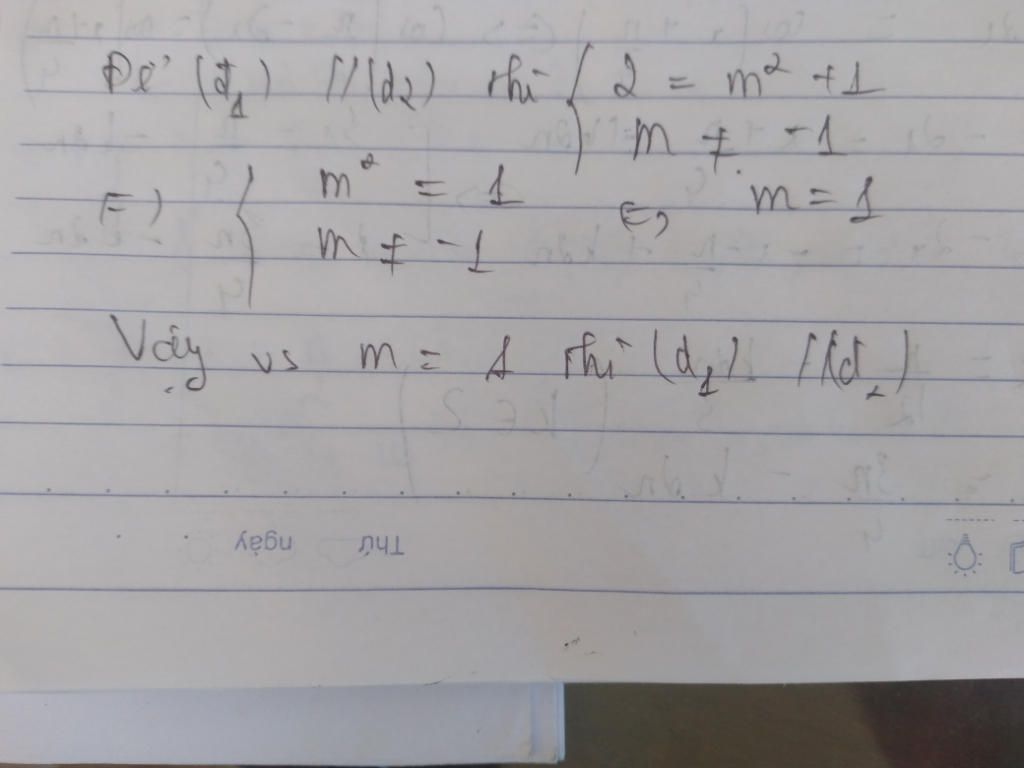 Để (d1) // (d2) thì { 2 = m² + 1
m ≠ -1
<=> { m² = 1
m ≠ -1
<=> m = 1
Vậy vs m = 1 thì (d1) // (d2)
Thứ ngày